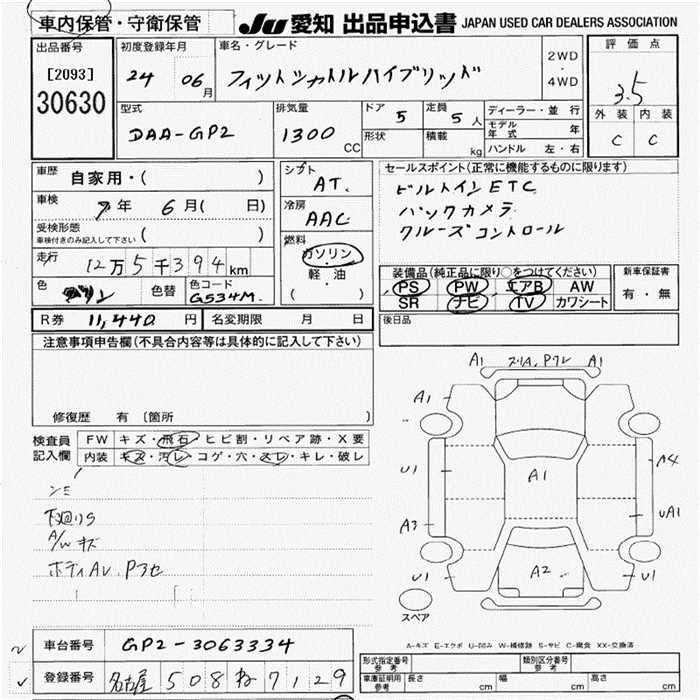 車内保管・守衛保管
JU 愛知 出品申込書 JAPAN USED CAR DEALERS ASSOCIATION
出品番号
[2093]
30630
初度登録年月
24 06月
車名・グレード
フィットシャトルハイブリッド
2WD
・
4WD
評価点
3.5
外装 内装
C C
型式
DAA-GP2
排気量
1300 CC
ドア 5
定員 5 人
形状
積載 kg
ディーラー・並行
モデル年式 年
ハンドル 左・右
車歴 自家用・( )
車検 7年 6月( 日)
受検形態
車検付きのみ記入して下さい ( )
走行 12万5千394km
色 色替
色コード G534M
シフト AT.
冷房 AAC
燃料
ガソリン
・
軽・油
( )
セールスポイント(正常に機能するものに限ります)
ビルトインETC
バックカメラ
クルーズコントロール
装備品(純正品に限り○をつけてください)
PS PW エアB AW
SR ナビ TV カワシート
新車保証書
有・無
後日品
R券 11,440 円
名変期限 月 日
注意事項申告欄(不具合内容等は具体的に記入して下さい)
修復歴 有 〔箇所 〕
検査員記入欄
FW キズ・飛石・ヒビ割・リペア跡・X要
内装 キズ・汚レ・コゲ・穴・スレ・キレ・破レ
シミ
下廻りS
A/W キズ
ボディAU.
A1 A1
A1
A1
U1 A4
A3 UA1
A2
U1 U1
スペア
A-キズ E-エクボ U-凹み W-補修跡 S-サビ C-腐食 XX-交換済
車台番号 GP2-3063334
登録番号 名古屋 508 ね 7129
形式指定番号 参考
類別区分番号 参考
車庫証明用 参考
長さ cm 幅 cm 高さ cm